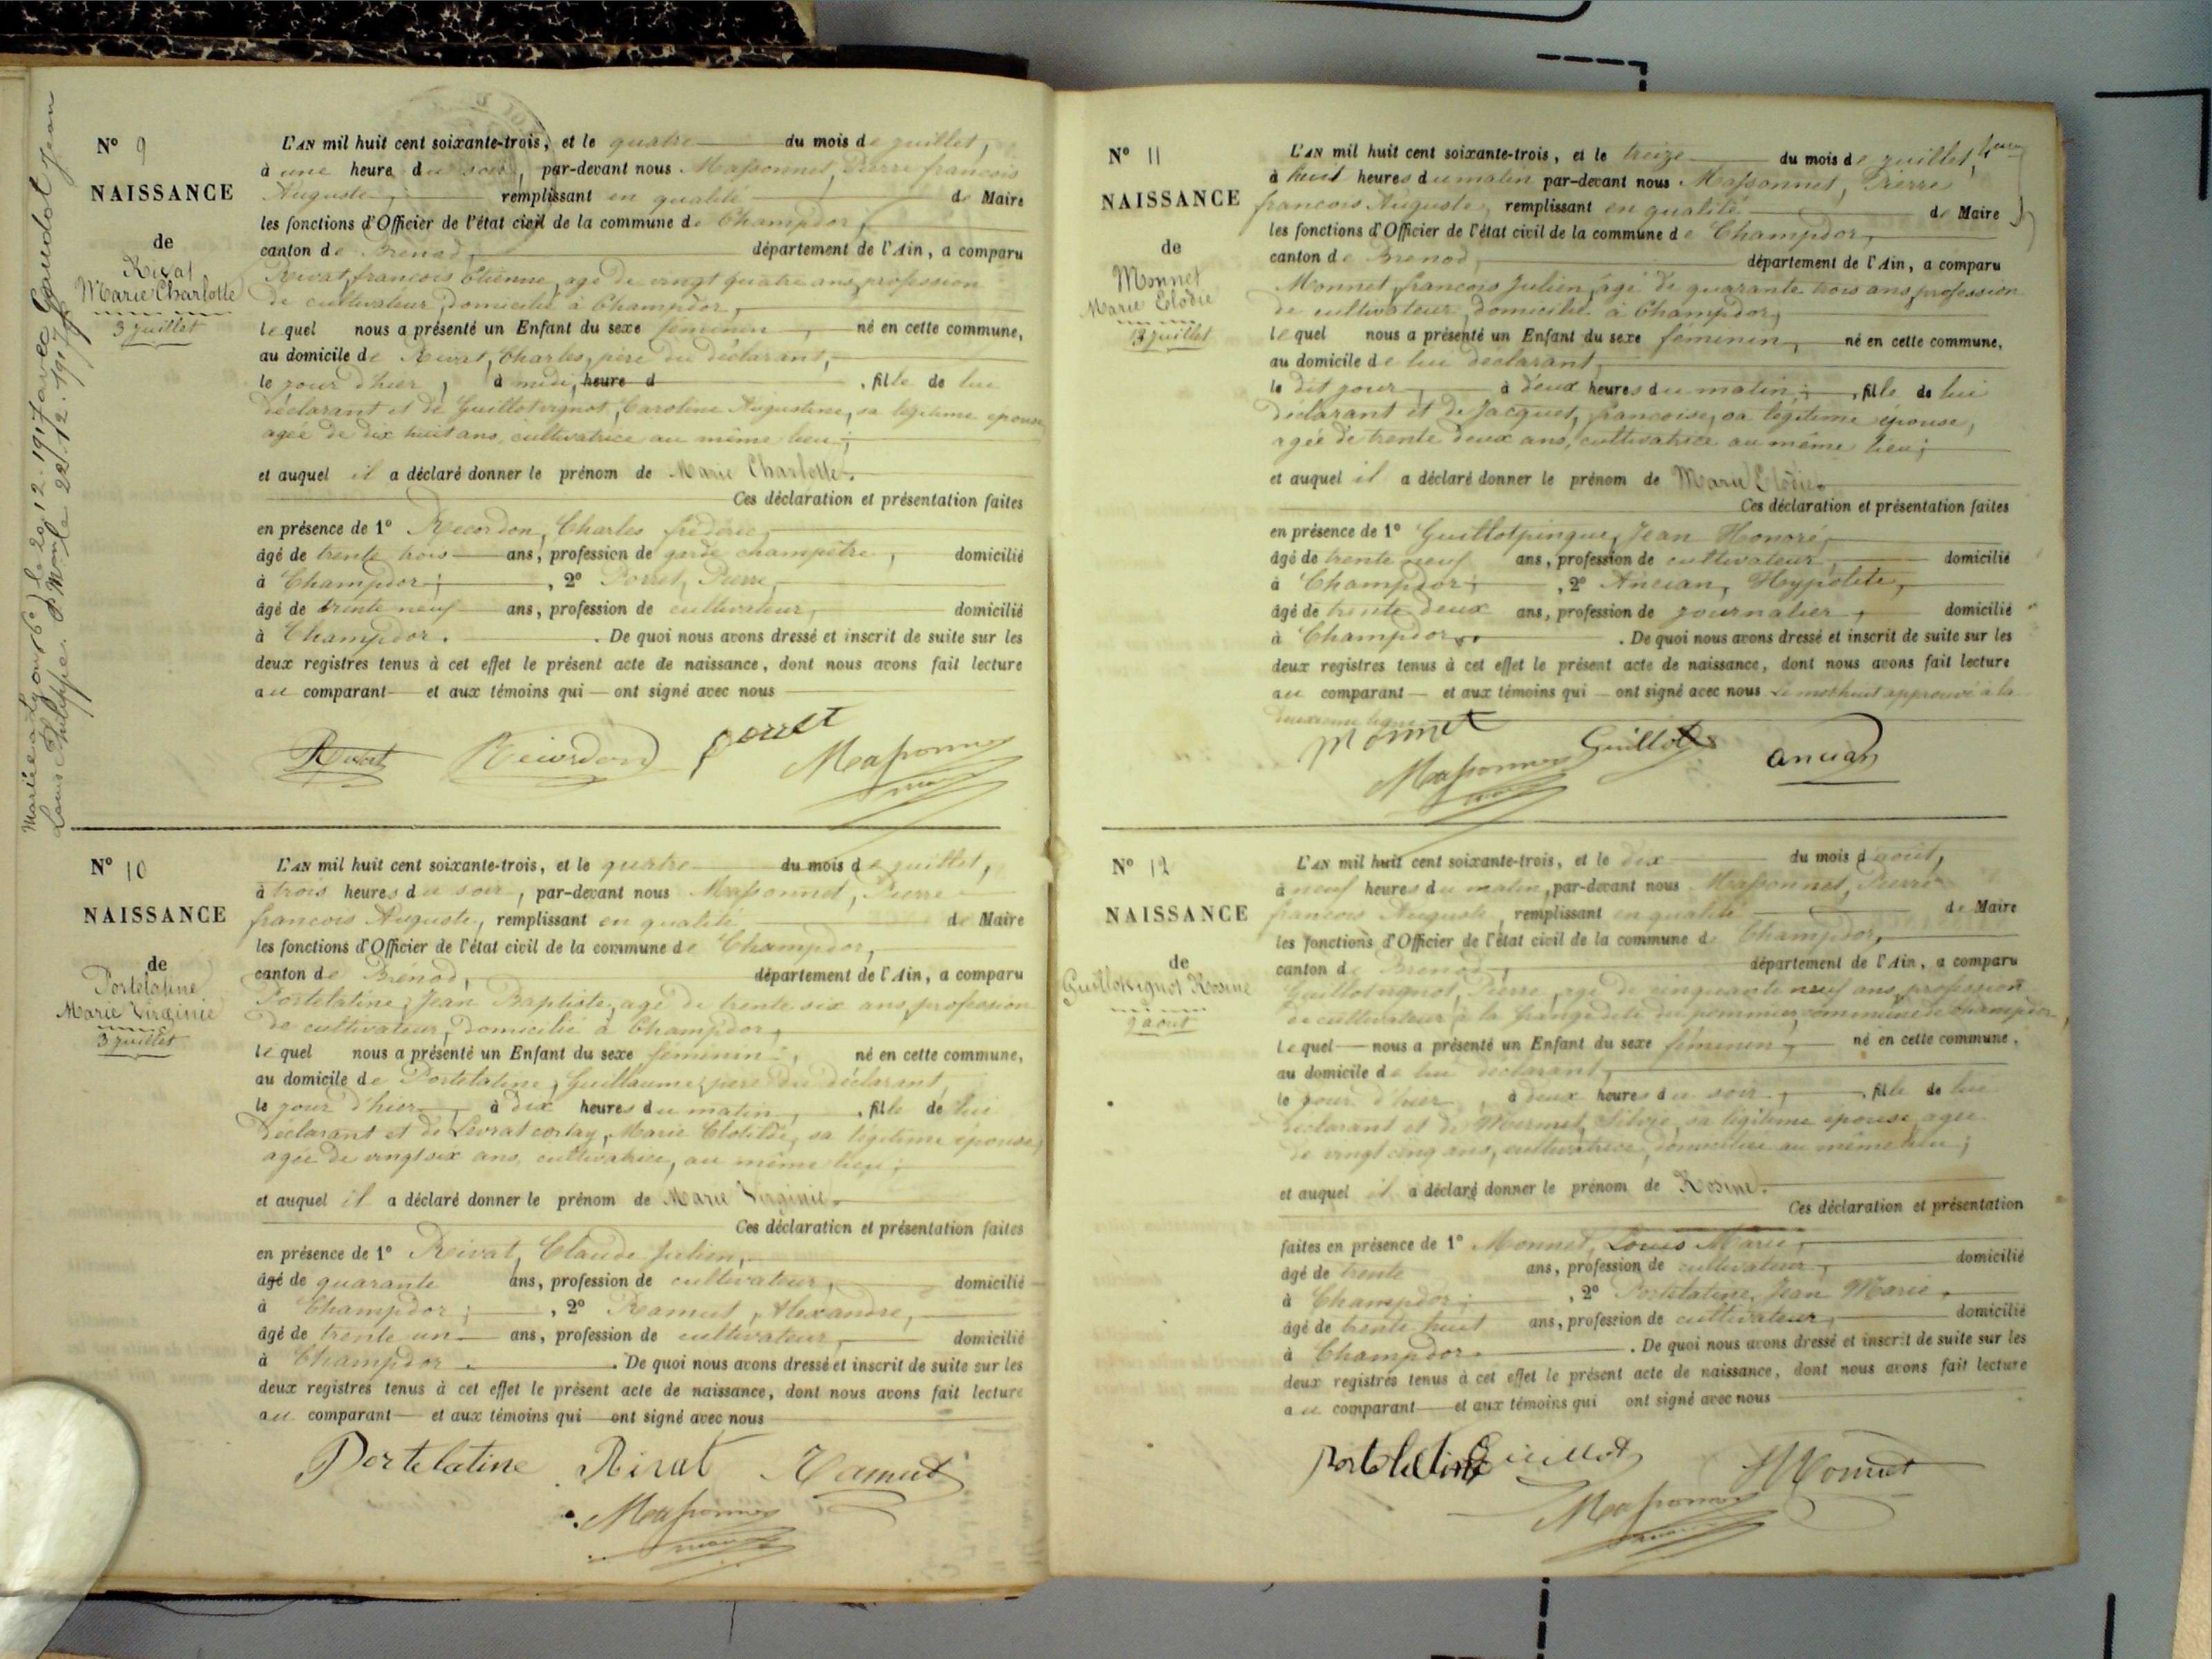 Mariée à Lyon (6e) le 20.12.1917 avec Gaudot Jean
Louis Philippe. P. M. le 22.12.1917
N° 9
NAISSANCE
de
Rivat
Marie Charlotte
3 juillet
L'AN mil huit cent soixante-trois, et le quatre du mois de juillet,
à une heure du soir, par-devant nous Massonnet, Pierre francois
Auguste, remplissant en qualité de Maire
les fonctions d'Officier de l'état civil de la commune de Champdor,
canton de Brenod, département de l'Ain, a comparu
Rivat, francois Etienne, agé de vingt quatre ans, profession
de cultivateur, domicilié à Champdor,
lequel nous a présenté un Enfant du sexe féminin, né en cette commune,
au domicile de Rivat, Charles, père du déclarant,
le jour d'hier, à midi, heure d , fille de lui
déclarant et de Guillotvignot, Caroline Augustine, sa légitime épouse
agée de dix huit ans, cultivatrice au même lieu;
et auquel il a déclaré donner le prénom de Marie Charlotte.
Ces déclaration et présentation faites
en présence de 1° Recordon, Charles frédéric,
âgé de trente trois ans, profession de garde champêtre, domicilié
à Champdor; , 2° Porret, Pierre,
âgé de trente neuf ans, profession de cultivateur, domicilié
à Champdor. . De quoi nous avons dressé et inscrit de suite sur les
deux registres tenus à cet effet le présent acte de naissance, dont nous avons fait lecture
au comparant et aux témoins qui ont signé avec nous
Rivat Recordon Porret
Massonnet
N° 10
NAISSANCE
de
Portelatine
Marie Virginie
3 juillet
L'AN mil huit cent soixante-trois, et le quatre du mois de juillet,
à trois heures du soir, par-devant nous Massonnet, Pierre
francois Auguste, remplissant en qualité de Maire
les fonctions d'Officier de l'état civil de la commune de Champdor,
canton de Brénod, département de l'Ain, a comparu
Portelatine, Jean Baptiste, agé de trente six ans, profession
de cultivateur, domicilié à Champdor,
lequel nous a présenté un Enfant du sexe féminin, né en cette commune,
au domicile de Portelatine, Guillaume, père du déclarant,
le jour d'hier, à dix heures du matin, , fille de lui
déclarant et de Levrat cortay, Marie Clotilde, sa légitime épouse,
agée de vingt six ans, cultivatrice, au même lieu;
et auquel il a déclaré donner le prénom de Marie Virginie.
Ces déclaration et présentation faites
en présence de 1° Rivat, Claude Julien,
âgé de quarante ans, profession de cultivateur, domicilié
à Champdor; , 2° Ramut, Alexandre,
âgé de trente un ans, profession de cultivateur, domicilié
à Champdor . De quoi nous avons dressé et inscrit de suite sur les
deux registres tenus à cet effet le présent acte de naissance, dont nous avons fait lecture
au comparant et aux témoins qui ont signé avec nous
Portelatine Rivat Ramut
Massonnet
N° 11
NAISSANCE
de
Monnet
Marie Elodie
13 juillet
L'AN mil huit cent soixante-trois, et le treize du mois de juillet,
à huit heures du matin par-devant nous Massonnet, Pierre
francois Auguste, remplissant en qualité de Maire
les fonctions d'Officier de l'état civil de la commune de Champdor,
canton de Brenod, département de l'Ain, a comparu
Monnet, francois Julien, âgé de quarante trois ans, profession
de cultivateur, domicilié à Champdor,
lequel nous a présenté un Enfant du sexe féminin, né en cette commune,
au domicile de lui déclarant,
le dit jour, à deux heures du matin; , fille de lui
déclarant et de Jacquet, francoise, sa légitime épouse,
agée de trente deux ans, cultivatrice au même lieu;
et auquel il a déclaré donner le prénom de Marie Elodie.
Ces déclaration et présentation faites
en présence de 1° Guillotpingue, Jean Honoré,
âgé de trente neuf ans, profession de cultivateur, domicilié
à Champdor; , 2° Ancian, Hypolite,
âgé de trente deux ans, profession de journalier, domicilié
à Champdor. . De quoi nous avons dressé et inscrit de suite sur les
deux registres tenus à cet effet le présent acte de naissance, dont nous avons fait lecture
au comparant et aux témoins qui ont signé avec nous Le mot huit approuvé à la
deuxieme ligne
Monnet
Massonnet Guillot ancian
N° 12
NAISSANCE
de
Guillotvignot Rosine
9 aout
L'AN mil huit cent soixante-trois, et le dix du mois d'août,
à neuf heures du matin, par-devant nous Massonnet, Pierre
francois Auguste, remplissant en qualité de Maire
les fonctions d'Officier de l'état civil de la commune de Champdor,
canton de Brenod, département de l'Ain, a comparu
Guillotvignot, Pierre, agé de cinquante neuf ans, profession
de cultivateur à la grange dite du pommier, commune de Champdor,
Lequel nous a présenté un Enfant du sexe féminin, né en cette commune,
au domicile de lui déclarant,
le jour d'hier, à deux heures du soir, , fille de lui
déclarant et de Mermet, Silvie, sa légitime épouse, agée
de vingt cinq ans, cultivatrice, domiciliée au même lieu;
et auquel il a déclaré donner le prénom de Rosine.
Ces déclaration et présentation
faites en présence de 1° Monnet, Louis Marie,
âgé de trente ans, profession de cultivateur, domicilié
à Champdor; , 2° Portelatine, Jean Marie,
âgé de trente huit ans, profession de cultivateur, domicilié
à Champdor. . De quoi nous avons dressé et inscrit de suite sur les
deux registres tenus à cet effet le présent acte de naissance, dont nous avons fait lecture
au comparant et aux témoins qui ont signé avec nous
Portelatine Guillot Monnet
Massonnet